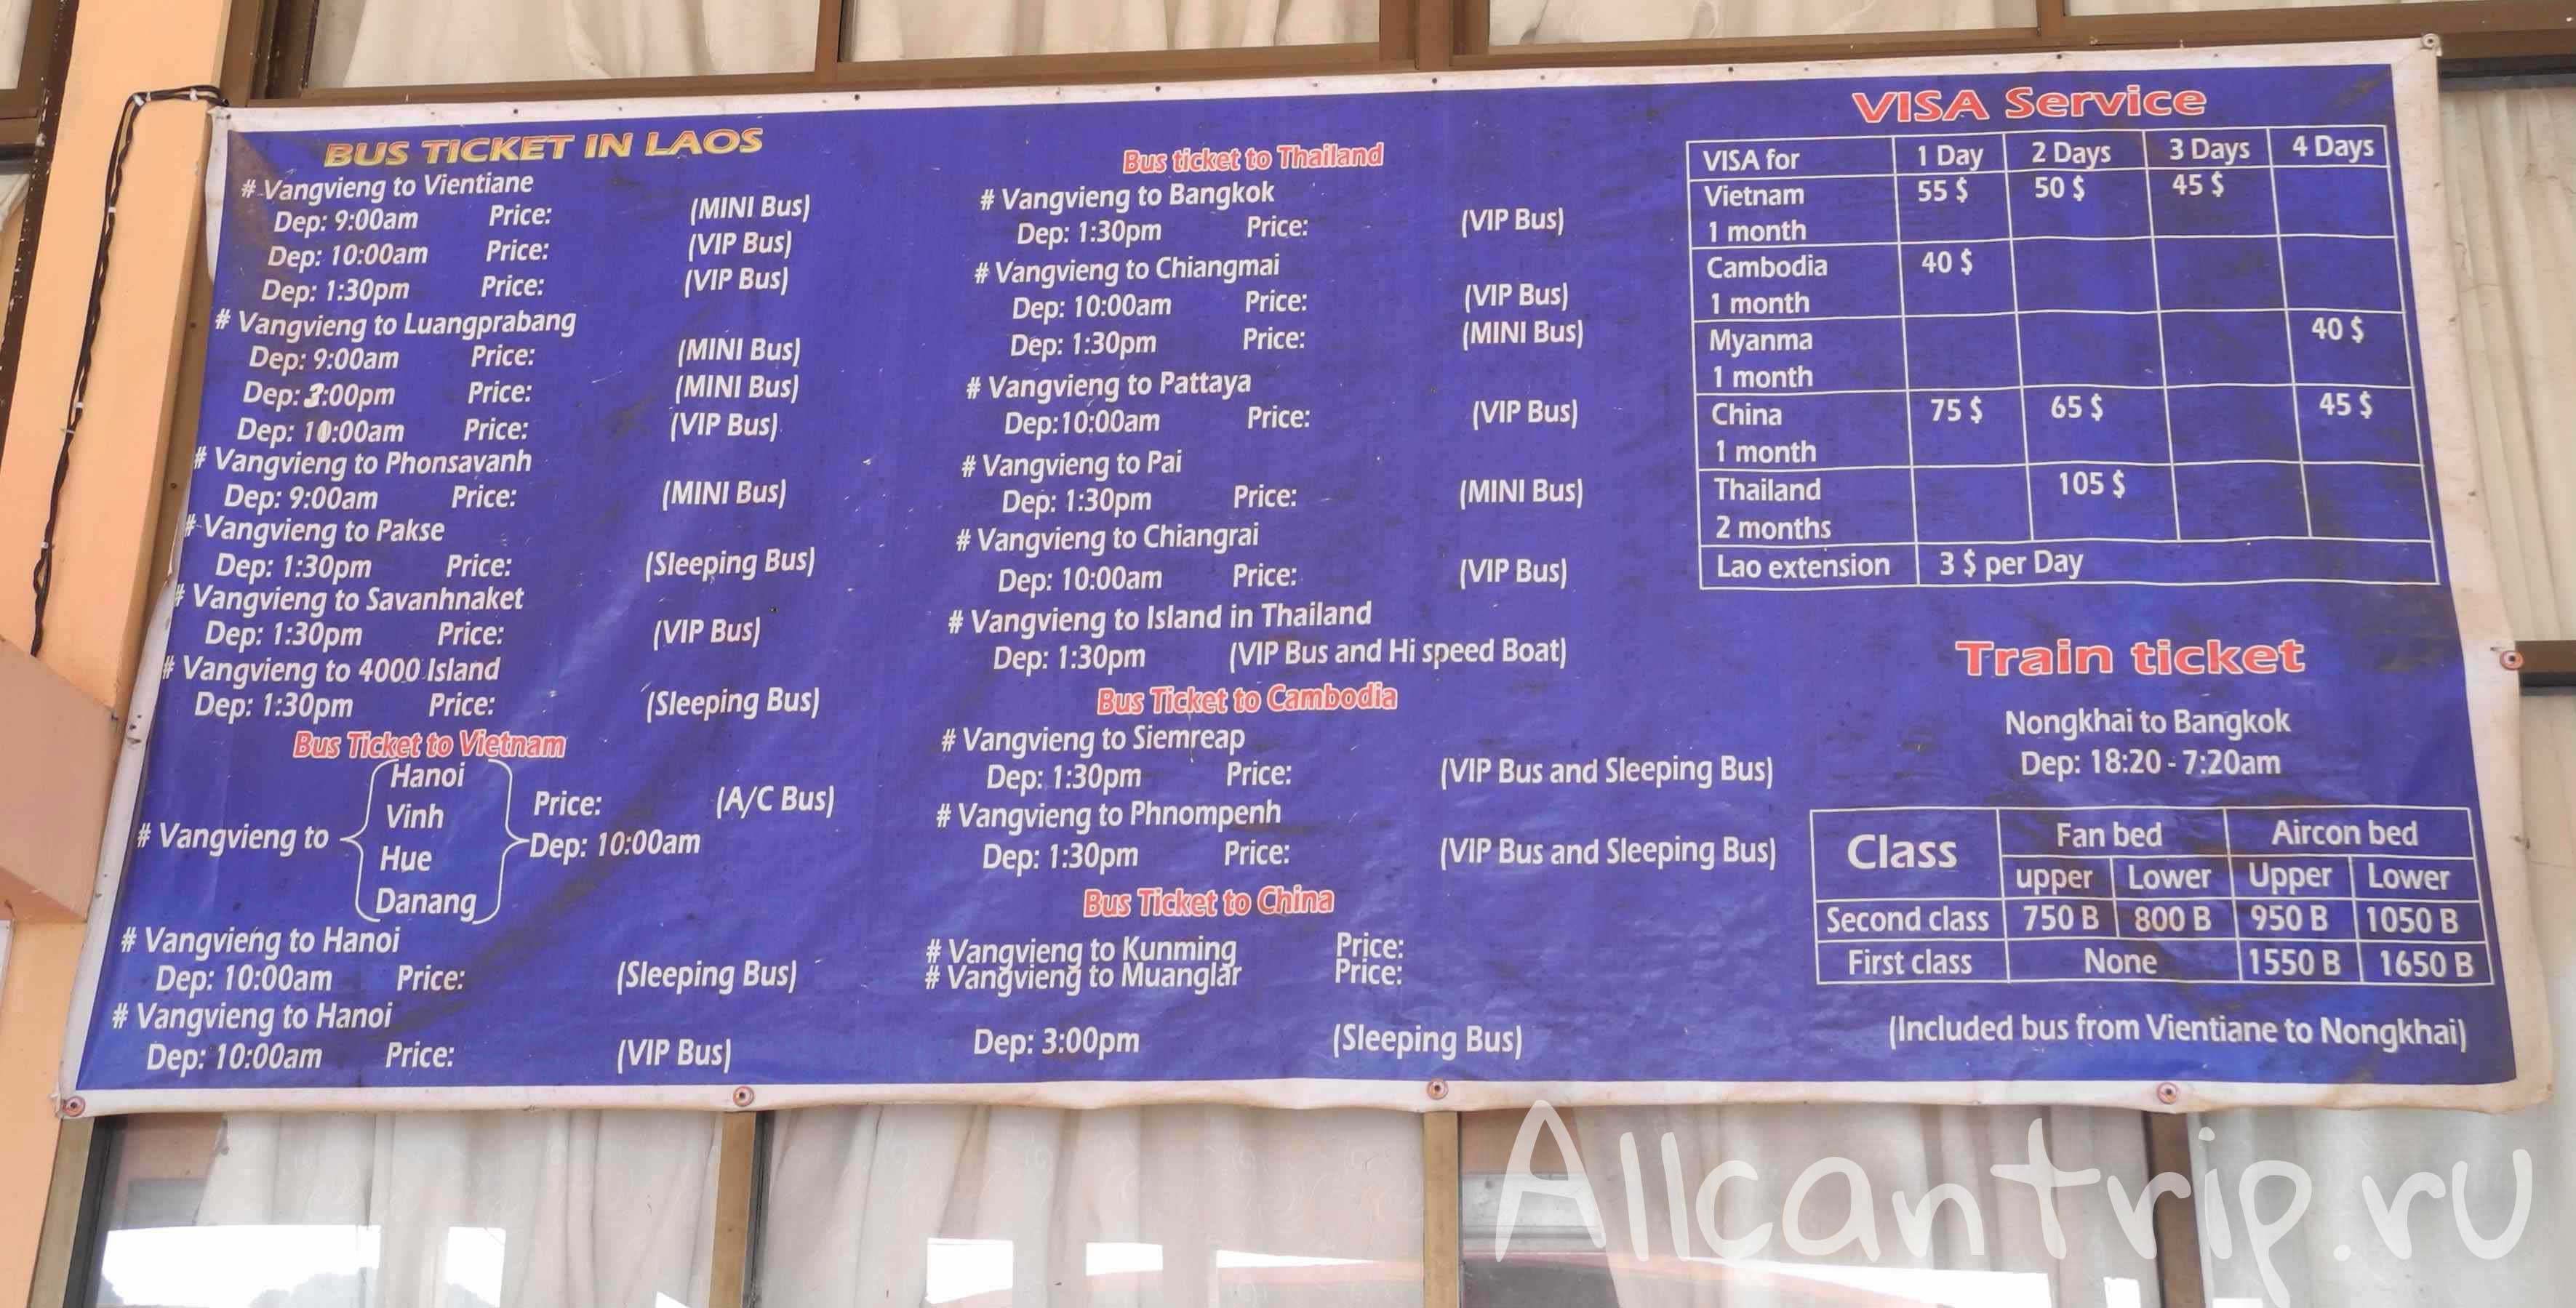 BUS TICKET IN LAOS
# Vangvieng to Vientiane
Dep: 9:00am Price: (MINI Bus)
Dep: 10:00am Price: (VIP Bus)
Dep: 1:30pm Price: (VIP Bus)
# Vangvieng to Luangprabang
Dep: 9:00am Price: (MINI Bus)
Dep: 3:00pm Price: (MINI Bus)
Dep: 10:00am Price: (VIP Bus)
# Vangvieng to Phonsavanh
Dep: 9:00am Price: (MINI Bus)
# Vangvieng to Pakse
Dep: 1:30pm Price: (Sleeping Bus)
# Vangvieng to Savanhnaket
Dep: 1:30pm Price: (VIP Bus)
# Vangvieng to 4000 Island
Dep: 1:30pm Price: (Sleeping Bus)
Bus Ticket to Vietnam
Hanoi
Vinh Price: (A/C Bus)
# Vangvieng to
Hue Dep: 10:00am
Danang
# Vangvieng to Hanoi
Dep: 10:00am Price: (Sleeping Bus)
# Vangvieng to Hanoi
Dep: 10:00am Price: (VIP Bus)
Bus ticket to Thailand
# Vangvieng to Bangkok
Dep: 1:30pm Price: (VIP Bus)
# Vangvieng to Chiangmai
Dep: 10:00am Price: (VIP Bus)
Dep: 1:30pm Price: (MINI Bus)
# Vangvieng to Pattaya
Dep:10:00am Price: (VIP Bus)
# Vangvieng to Pai
Dep: 1:30pm Price: (MINI Bus)
# Vangvieng to Chiangrai
Dep: 10:00am Price: (VIP Bus)
# Vangvieng to Island in Thailand
Dep: 1:30pm (VIP Bus and Hi speed Boat)
Bus Ticket to Cambodia
# Vangvieng to Siemreap
Dep: 1:30pm Price: (VIP Bus and Sleeping Bus)
# Vangvieng to Phnompenh
Dep: 1:30pm Price: (VIP Bus and Sleeping Bus)
Bus Ticket to China
# Vangvieng to Kunming Price:
# Vangvieng to Muanglar Price:
Dep: 3:00pm (Sleeping Bus)
VISA Service
VISA for 1 Day 2 Days 3 Days 4 Days
Vietnam 55 $ 50 $ 45 $
1 month
Cambodia 40 $
1 month
Myanma 40 $
1 month
China 75 $ 65 $ 45 $
1 month
Thailand 105 $
2 months
Lao extension 3 $ per Day
Train ticket
Nongkhai to Bangkok
Dep: 18:20 - 7:20am
Class Fan bed Aircon bed
upper Lower Upper Lower
Second class 750 B 800 B 950 B 1050 B
First class None 1550 B 1650 B
(Included bus from Vientiane to Nongkhai)
Allcantrip.ru